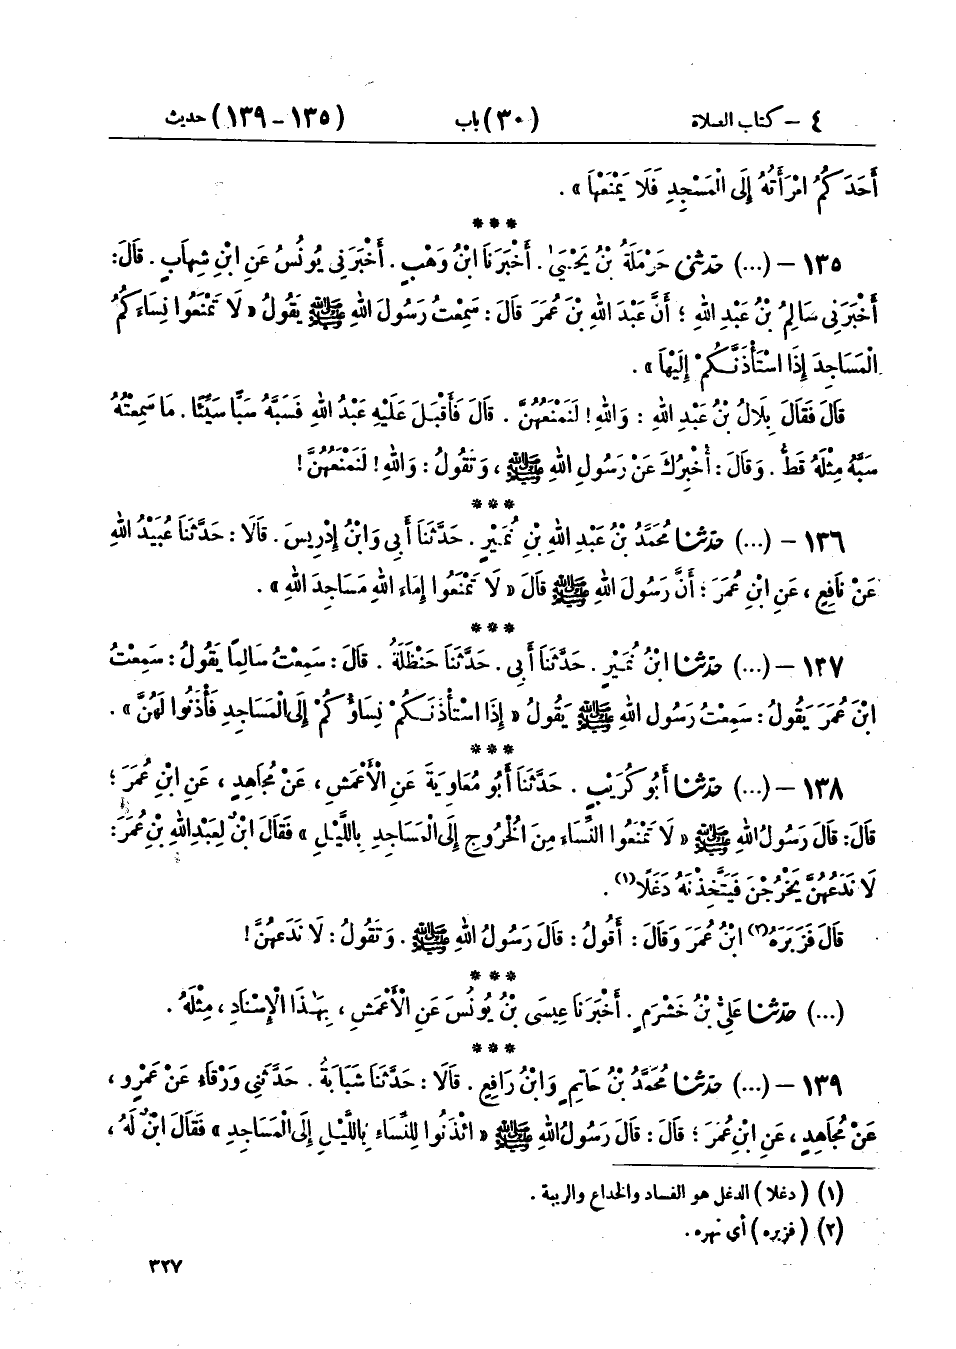 ٤ – كتاب الصلاة (٣٠) باب (١٣٥ – ١٣٩) حديث
أَحَدَكُمُ امْرَأَتُهُ إِلَى الْمَسْجِدِ فَلَا يَمْنَعْهَا» .
***
١٣٥ – (...) حَدَّثَنِي حَرْمَلَةُ بْنُ يَحْيَىٰ . أَخْبَرَنَا ابْنُ وَهْبٍ . أَخْبَرَنِي يُونُسُ عَنِ ابْنِ شِهَابٍ . قَالَ:
أَخْبَرَنِي سَالِمُ بْنُ عَبْدِ اللهِ ؛ أَنَّ عَبْدَ اللهِ بْنَ عُمَرَ قَالَ : سَمِعْتُ رَسُولَ اللهِ ﷺ يَقُولُ « لَا تَمْنَعُوا نِسَاءَكُمُ
الْمَسَاجِدَ إِذَا اسْتَأْذَنَّكُمْ إِلَيْهَا » .
قَالَ فَقَالَ بِلَالُ بْنُ عَبْدِ اللهِ : وَاللهِ ! لَنَمْنَعُهُنَّ . قَالَ فَأَقْبَلَ عَلَيْهِ عَبْدُ اللهِ فَسَبَّهُ سَبًّا سَيِّئًا . مَا سَمِعْتُهُ
سَبَّهُ مِثْلَهُ قَطُّ . وَقَالَ : أُخْبِرُكَ عَنْ رَسُولِ اللهِ ﷺ ، وَتَقُولُ : وَاللهِ ! لَنَمْنَعُهُنَّ !
***
١٣٦ – (...) حَدَّثَنَا مُحَمَّدُ بْنُ عَبْدِ اللهِ بْنِ نُمَيْرٍ . حَدَّثَنَا أَبِي وَابْنُ إِدْرِيسَ . قَالَا : حَدَّثَنَا عُبَيْدُ اللهِ
عَنْ نَافِعٍ ، عَنِ ابْنِ عُمَرَ ؛ أَنَّ رَسُولَ اللهِ ﷺ قَالَ « لَا تَمْنَعُوا إِمَاءَ اللهِ مَسَاجِدَ اللهِ » .
***
١٣٧ – (...) حَدَّثَنَا ابْنُ نُمَيْرٍ . حَدَّثَنَا أَبِي . حَدَّثَنَا حَنْظَلَةُ . قَالَ : سَمِعْتُ سَالِمًا يَقُولُ : سَمِعْتُ
ابْنَ عُمَرَ يَقُولُ : سَمِعْتُ رَسُولَ اللهِ ﷺ يَقُولُ « إِذَا اسْتَأْذَنَكُمْ نِسَاؤُكُمْ إِلَى الْمَسَاجِدِ فَأْذَنُوا لَهُنَّ » .
***
١٣٨ – (...) حَدَّثَنَا أَبُو كُرَيْبٍ . حَدَّثَنَا أَبُو مُعَاوِيَةَ عَنِ الْأَعْمَشِ ، عَنْ مُجَاهِدٍ ، عَنِ ابْنِ عُمَرَ ؛
قَالَ: قَالَ رَسُولُ اللهِ ﷺ « لَا تَمْنَعُوا النِّسَاءَ مِنَ الْخُرُوجِ إِلَى الْمَسَاجِدِ بِاللَّيْلِ » فَقَالَ ابْنٌ لِعَبْدِ اللهِ بْنِ عُمَرَ:
لَا نَدَعُهُنَّ يَخْرُجْنَ فَيَتَّخِذْنَهُ دَغَلًا(١) .
قَالَ فَزَبَرَهُ(٢) ابْنُ عُمَرَ وَقَالَ : أَقُولُ : قَالَ رَسُولُ اللهِ ﷺ . وَتَقُولُ : لَا نَدَعُهُنَّ !
***
(...) حَدَّثَنَا عَلِيُّ بْنُ خَشْرَمٍ . أَخْبَرَنَا عِيسَى بْنُ يُونُسَ عَنِ الْأَعْمَشِ ، بِهَٰذَا الْإِسْنَادِ ، مِثْلَهُ .
***
١٣٩ – (...) حَدَّثَنَا مُحَمَّدُ بْنُ حَاتِمٍ وَابْنُ رَافِعٍ . قَالَا : حَدَّثَنَا شَبَابَةُ . حَدَّثَنِي وَرْقَاءُ عَنْ عَمْرٍو ،
عَنْ مُجَاهِدٍ ، عَنِ ابْنِ عُمَرَ ؛ قَالَ : قَالَ رَسُولُ اللهِ ﷺ « ائْذَنُوا لِلنِّسَاءِ بِاللَّيْلِ إِلَى الْمَسَاجِدِ » فَقَالَ ابْنٌ لَهُ ،
(١) ( دغلا ) الدغل هو الفساد والخداع والريبة .
(٢) ( فزبره ) أي نهره .
٣٢٧